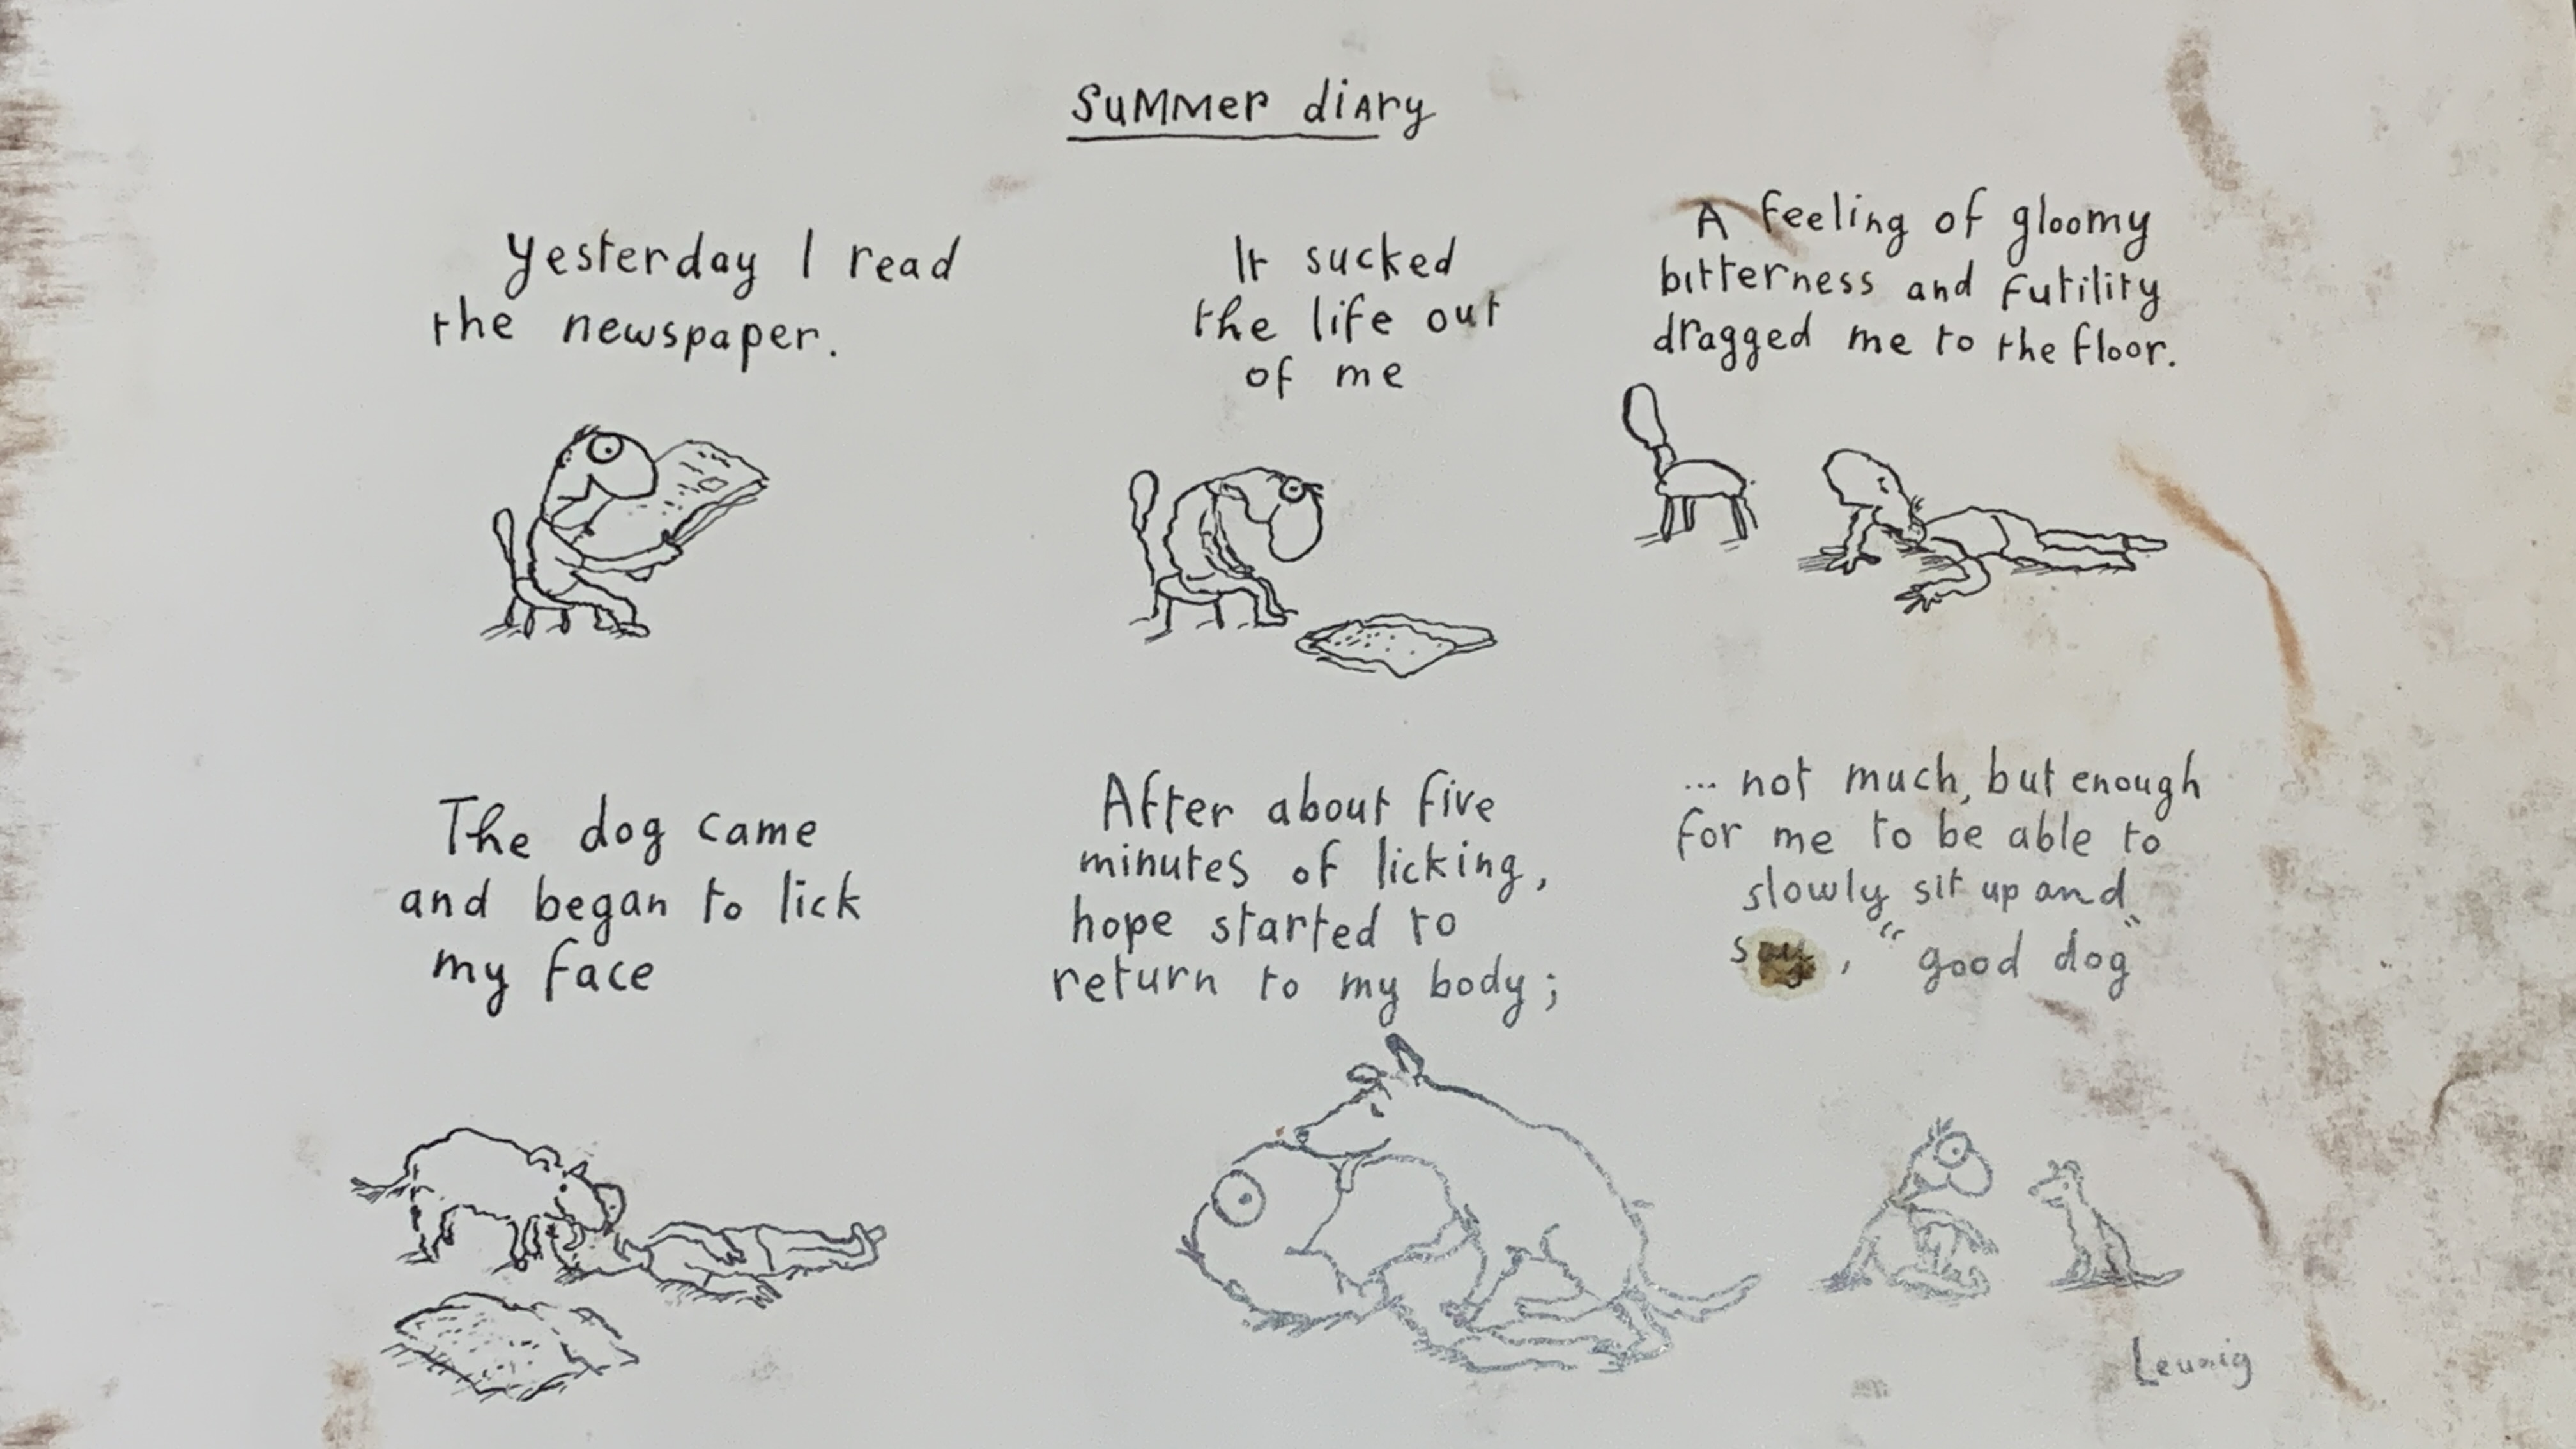 Summer diary
Yesterday I read
the newspaper.
It sucked
the life out
of me
A feeling of gloomy
bitterness and futility
dragged me to the floor.
The dog came
and began to lick
my face
After about five
minutes of licking,
hope started to
return to my body;
... not much, but enough
for me to be able to
slowly sit up and
say, "good dog"
Leunig